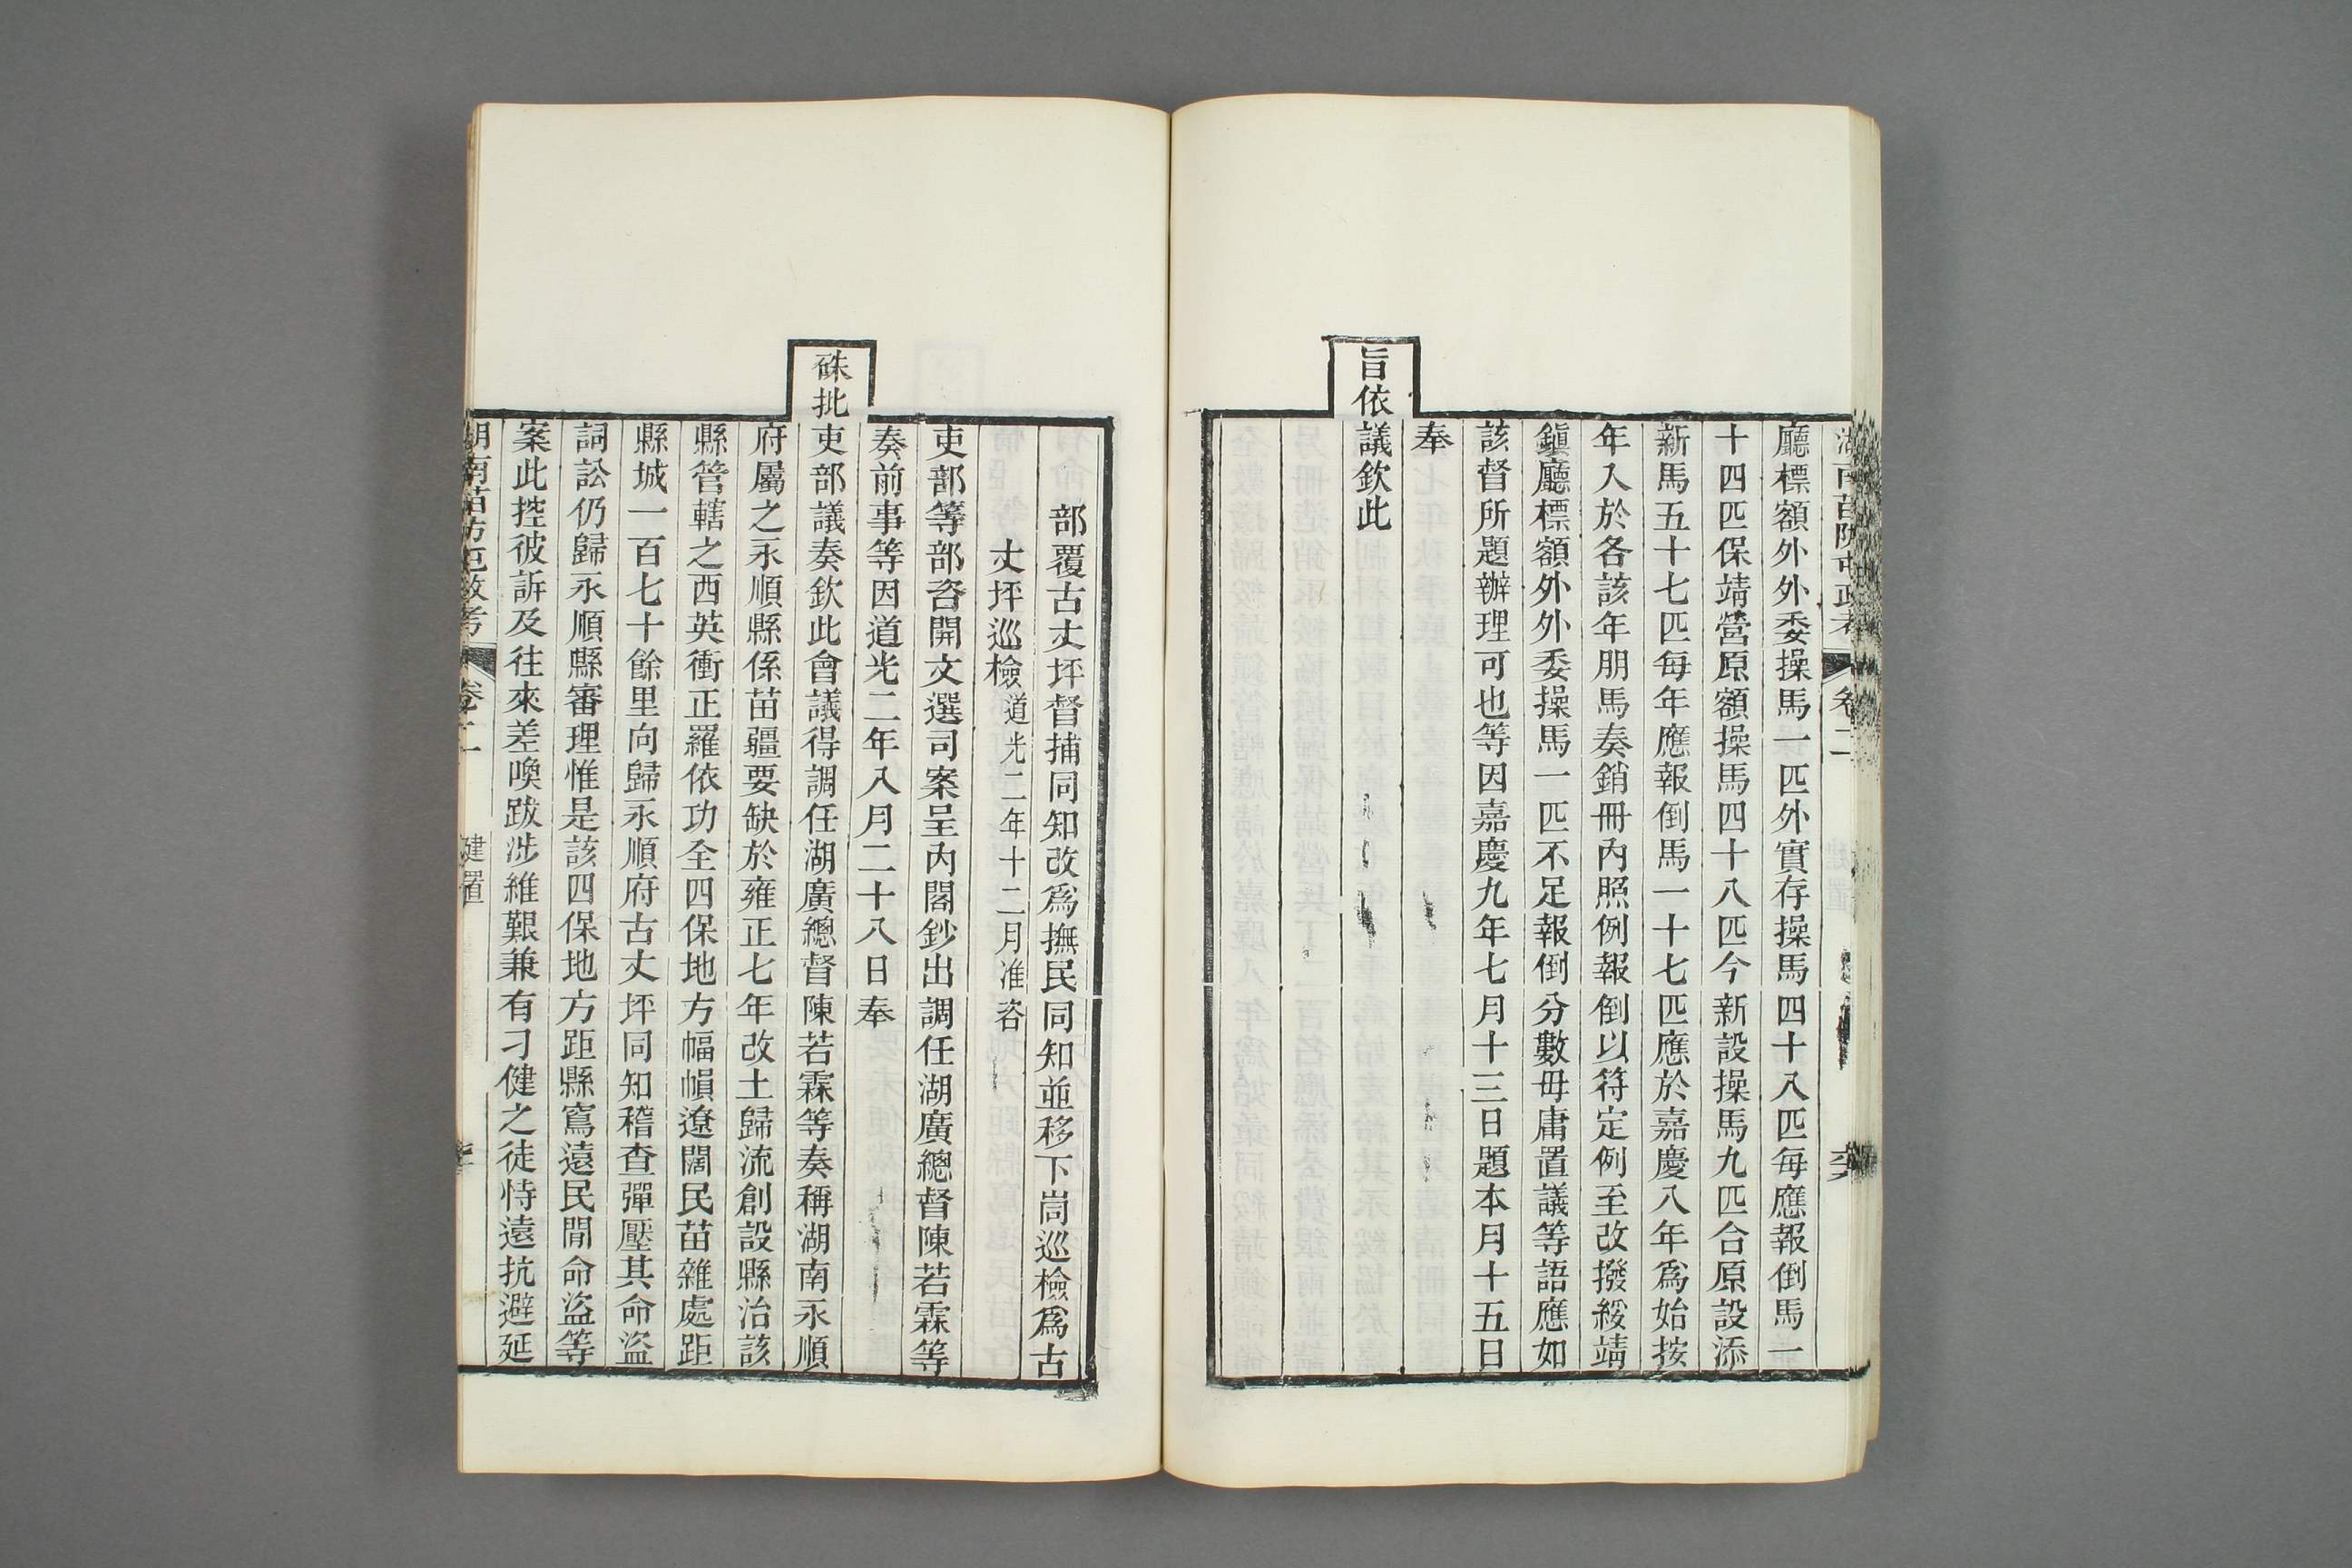 湖南苗防屯政考 卷二
廳標額外外委操馬一匹外實存操馬四十八匹每應報倒馬一
十四匹保靖營原額操馬四十八匹今新設操馬九匹合原設添
新馬五十七匹每年應報倒馬一十七匹應於嘉慶八年爲始按
年入於各該年朋馬奏銷冊內照例報倒以符定例至改撥綏靖
鎭廳標額外外委操馬一匹不足報倒分數毋庸置議等語應如
該督所題辦理可也等因嘉慶九年七月十三日題本月十五日
奉
旨依議欽此
部覆古丈坪督捕同知改爲撫民同知並移下峝巡檢爲古
丈坪巡檢道光二年十二月准咨
吏部等部咨開文選司案呈內閣鈔出調任湖廣總督陳若霖等
奏前事等因道光二年八月二十八日奉
硃批吏部議奏欽此會議得調任湖廣總督陳若霖等奏稱湖南永順
府屬之永順縣係苗疆要缺於雍正七年改土歸流創設縣治該
縣管轄之西英衝正羅依功全四保地方幅幀遼闊民苗雜處距
縣城一百七十餘里向歸永順府古丈坪同知稽查彈壓其命盜
詞訟仍歸永順縣審理惟是該四保地方距縣窵遠民間命盜等
案此控彼訴及往來差喚跋涉維艱兼有刁健之徒恃遠抗避延
湖南苗防屯政考 卷二 建置